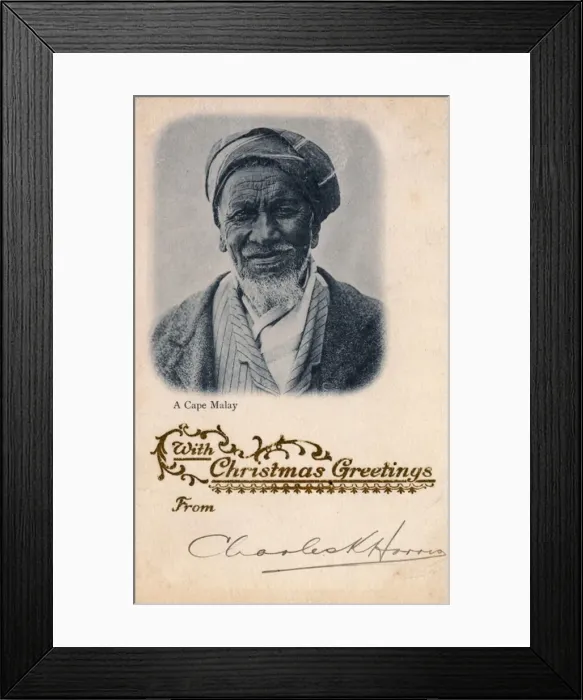 A Cape Malay
With
Christmas Greetings
From
Charles K Harris